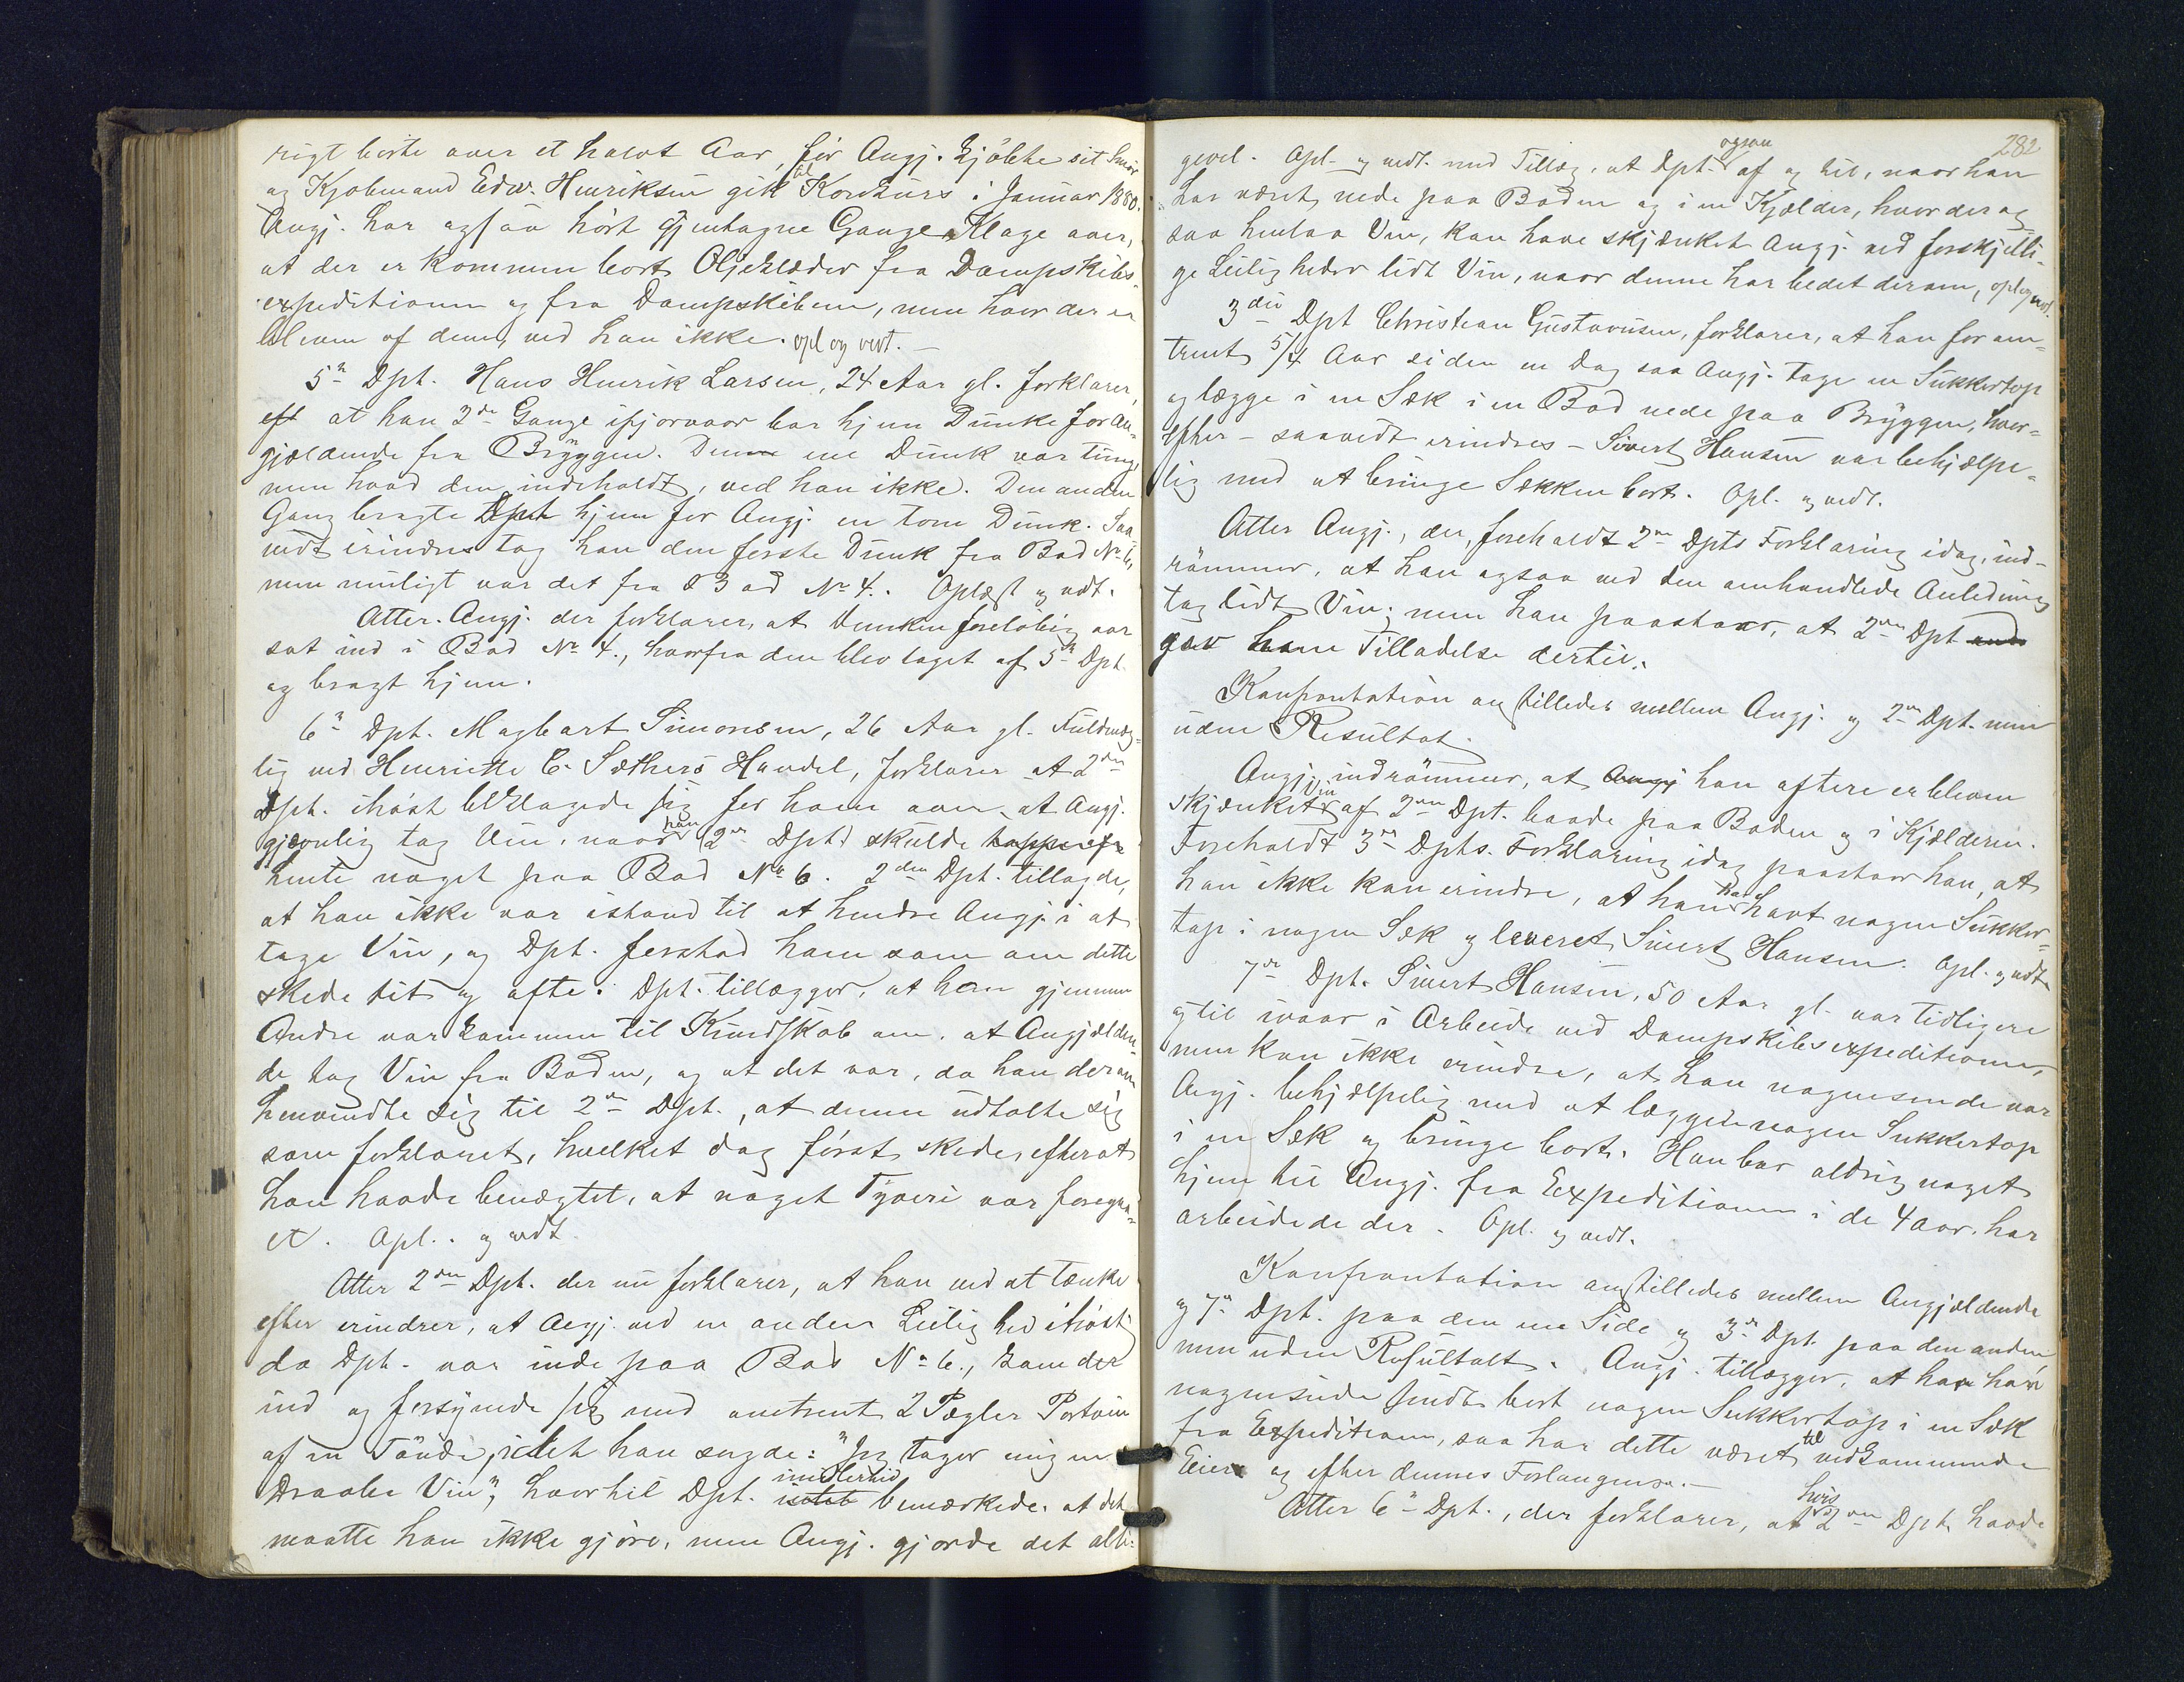 rigt borte over et halvt Aar, før Angj. kjøbte sit Smør
og Kjøbmand Edw. Henriksen gik til Konkurs i Januar 1880.
Angj. har ogsaa hørt gjentagne Gange Klage over,
at der er kommen bort Oljeklæder fra Dampskibs-
expeditionen og fra Dampskibene, men hvor der er
bleven af dem, ved han ikke. opl og vedt. —
5te Dpt. Hans Henrik Larsen, 24 Aar gl. forklarer,
eft at han 2de Gange ifjorvaar bar hjem Dunke for An-
gjældende fra Bryggen. Denne ene Dunk var tung,
men hvad den indeholdt, ved han ikke. Den anden
Gang bragte Dpt hjem for Angj. en tom Dunk. Saa-
vidt erindres tog han den første Dunk fra Bod No 6,
men muligt var det fra Bod No 4. Oplæst og vedt.
Atter Angj. der forklarer, at Dunken foreløbig var
sat ind i Bod No 4., hvorfra den blev taget af 5te Dpt.
og bragt hjem.
6te Dpt. Magbart Simonsen, 26 Aar gl. Fuldmæg-
tig ved Henriette C. Sæthers Handel, forklarer at 2den
Dpt. ihøst beklagede sig for ham over, at Angj.
gjævnlig tog Vin, naar han (2den Dpt) skulde tappe efr
hente noget paa Bod No 6. 2den Dpt. tillagde,
at han ikke var istand til at hindre Angj. i at
tage Vin, og Dpt. forstod ham som om dette
skede tit og ofte. Dpt. tillægger, at han gjennem
Andre var kommen til Kundskab om, at Angjælden-
de tog Vin fra Boden, og at det var, da han derom
henvendte sig til 2den Dpt., at denne udtalte sig
som forklaret, hvilket dog først skede, efterat
han havde benægtet, at noget Tyveri var foregaa-
et. Opl. og vedt
Atter 2den Dpt. der nu forklarer, at han ved at tænke
efter erindrer, at Angj. ved en anden Leilighed ihøst,
da Dpt. var inde paa Bod No 6., kom der
ind og forsynede sig med omtrent 2 Pægler Portvin
af en Tønde, idet han sagde: "Jeg tager mig en
Draabe Vin", hvortil Dpt. idet imidlertid bemærkede, at det
maatte han ikke gjøre, men Angj. gjorde det alli-
282
gevel. Opl. og vedt. med Tillæg, at Dpt. ogsaa af og til, naar han
har været nede paa Boden og i en Kjælder, hvor der og-
saa henlaa Vin, kan have skjænket Angj. ved forskjelli-
ge Leiligheder lidt Vin, naar denne har bedet derom, opl og vedt.
3die Dpt Christian Gustavusen, forklarer, at han for om-
trent 5/4 Aar siden en Dag saa Angj. tage en Sukkertop
og lægge i en Sæk i en Bod nede paa Bryggen, hvor-
efter – saavidt erindres – Sivert Hansen var behjælpe-
lig med at bringe Sækken bort. Opl. og vedt.
Atter Angj., der, foreholdt 2den Dpts Forklaring idag, ind-
rømmer, at han ogsaa ved den omhandlede Anledning
tog lidt Vin; men han paastaar, at 2den Dpt
gav ham Tilladelse dertil.
Konfrontation anstilledes mellem Angj. og 2den Dpt. men
uden Resultat.
Angj. indrømmer, at Angj han oftere er bleven
skjænket Vin af 2den Dpt. baade paa Boden og i Kjælderen.
Foreholdt 3die Dpts. Forklaring idag paastaar han, at
han ikke kan erindre, at han har havt nogen Sukker-
top i nogen Sæk og leveret Sivert Hansen. Opl. og vedt.
7de Dpt. Sivert Hansen, 50 Aar gl. var tidligere
og til ivaar i Arbeide ved Dampskibsexpeditionen,
men kan ikke erindre, at han nogensinde var
Angj. behjælpelig med at lægge nogen Sukkertop
i en Sæk og bringe bort. Han bar aldrig noget
hjem til Angj. fra Expeditionen i de 4 Aar, har
arbeidede der. Opl. og vedt.
Konfrontation anstilledes mellem Angjældende
og 7de Dpt. paa den ene Side og 3die Dpt. paa den anden
men uden Resultalt. Angj. tillægger, at har han
nogensinde sendt bort nogen Sukkertop i en Sæk
fra Expeditionen, saa har dette været til vedkommende
Eier og efter dennes Forlangende. —
Atter 6te Dpt., der forklarer, at hvis 2den Dpt. havde